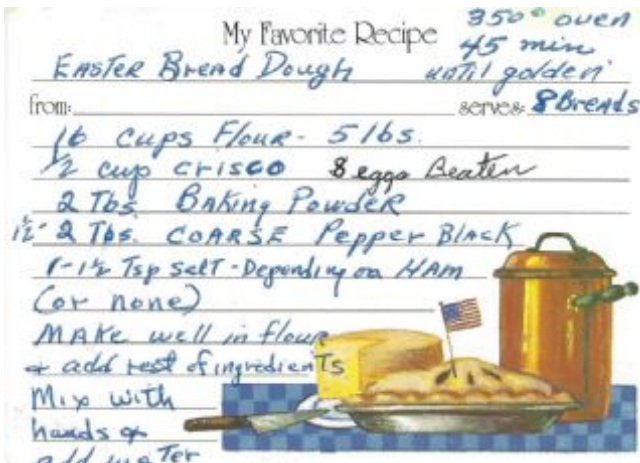 My Favorite Recipe
350° oven
45 min
until golden
EASTER Bread Dough
from:
serves: 8 Breads
16 cups Flour - 5 lbs.
1/2 cup crisco 8 eggs Beaten
2 Tbs. BAKing Powder
1½- 2 Tbs. COARSE Pepper BLACK
1-1½ Tsp salt - Depending on HAM
(or none)
MAKe well in flour
& add rest of ingredienTs
Mix with
hands &
add waTer